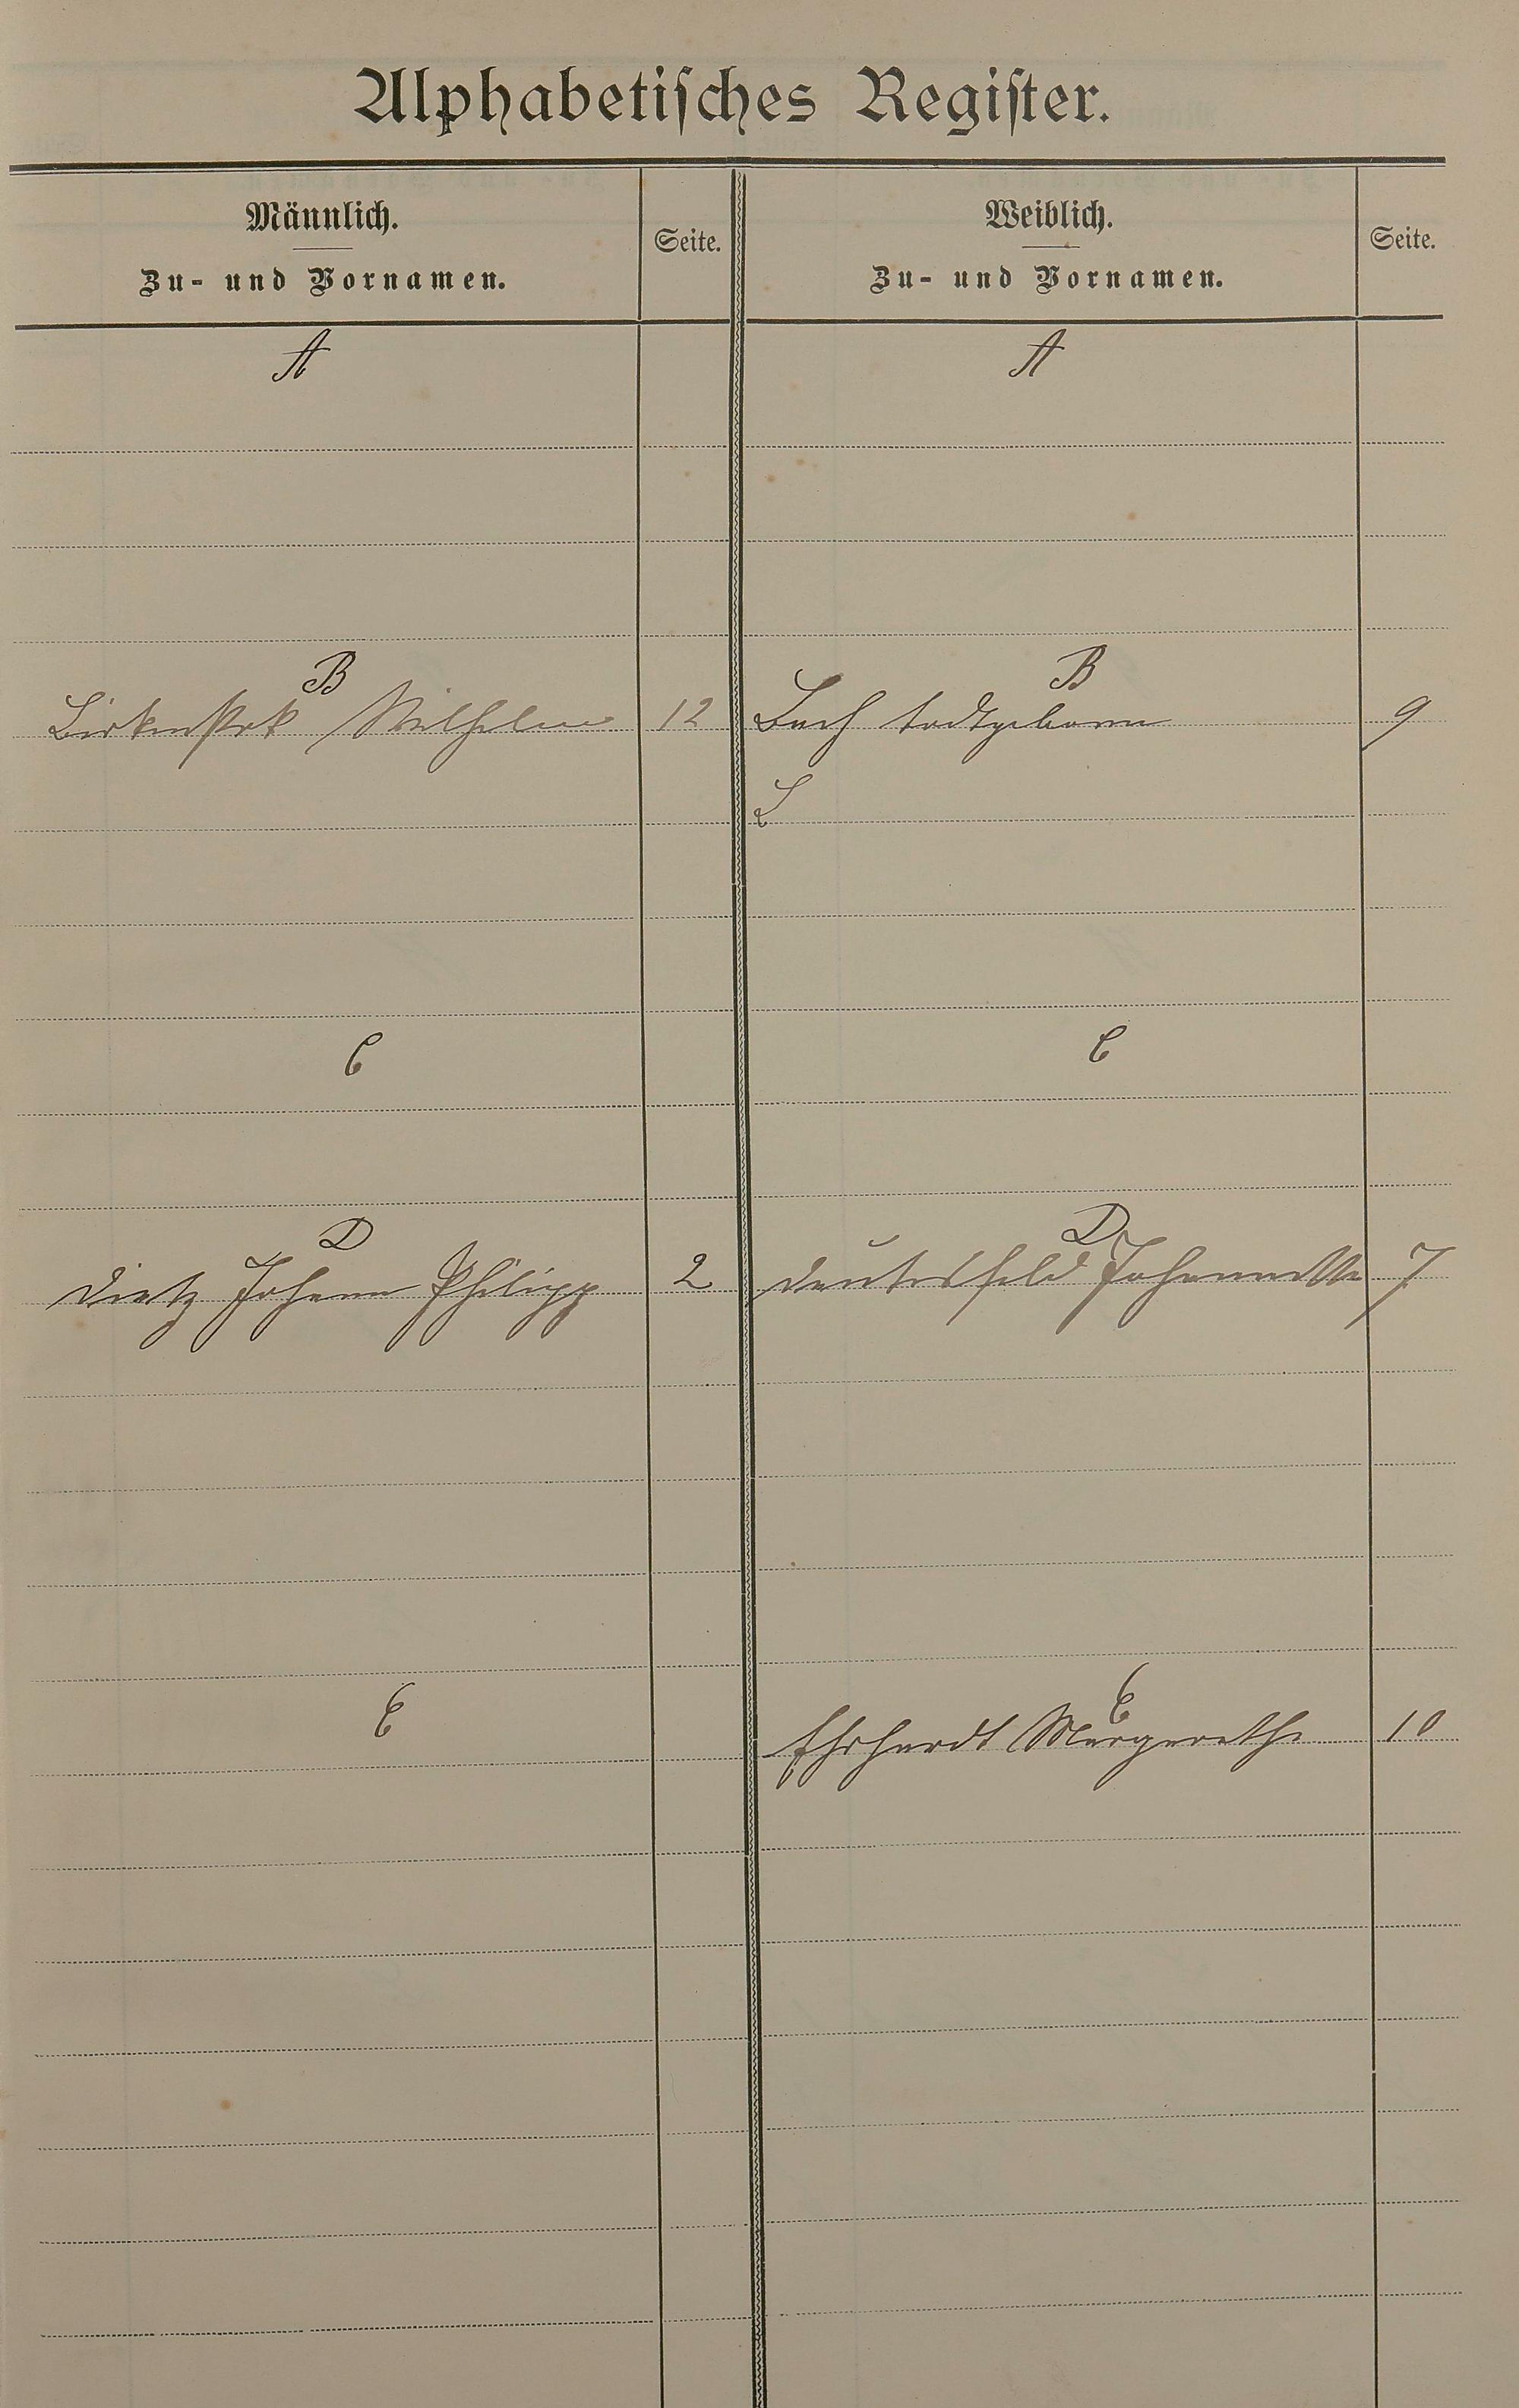 Alphabetisches Register.
Männlich.
Zu- und Vornamen.
Seite.
Weiblich.
Zu- und Vornamen.
Seite.
A
A
B
B
Birkenstock Wilhelm 12
Bach todtgeboren 9
B
C
C
D
D
Dietz Johann Philipp 2
Deutesfeld Johannette 7
E
E
Ehrhardt Margarethe 10